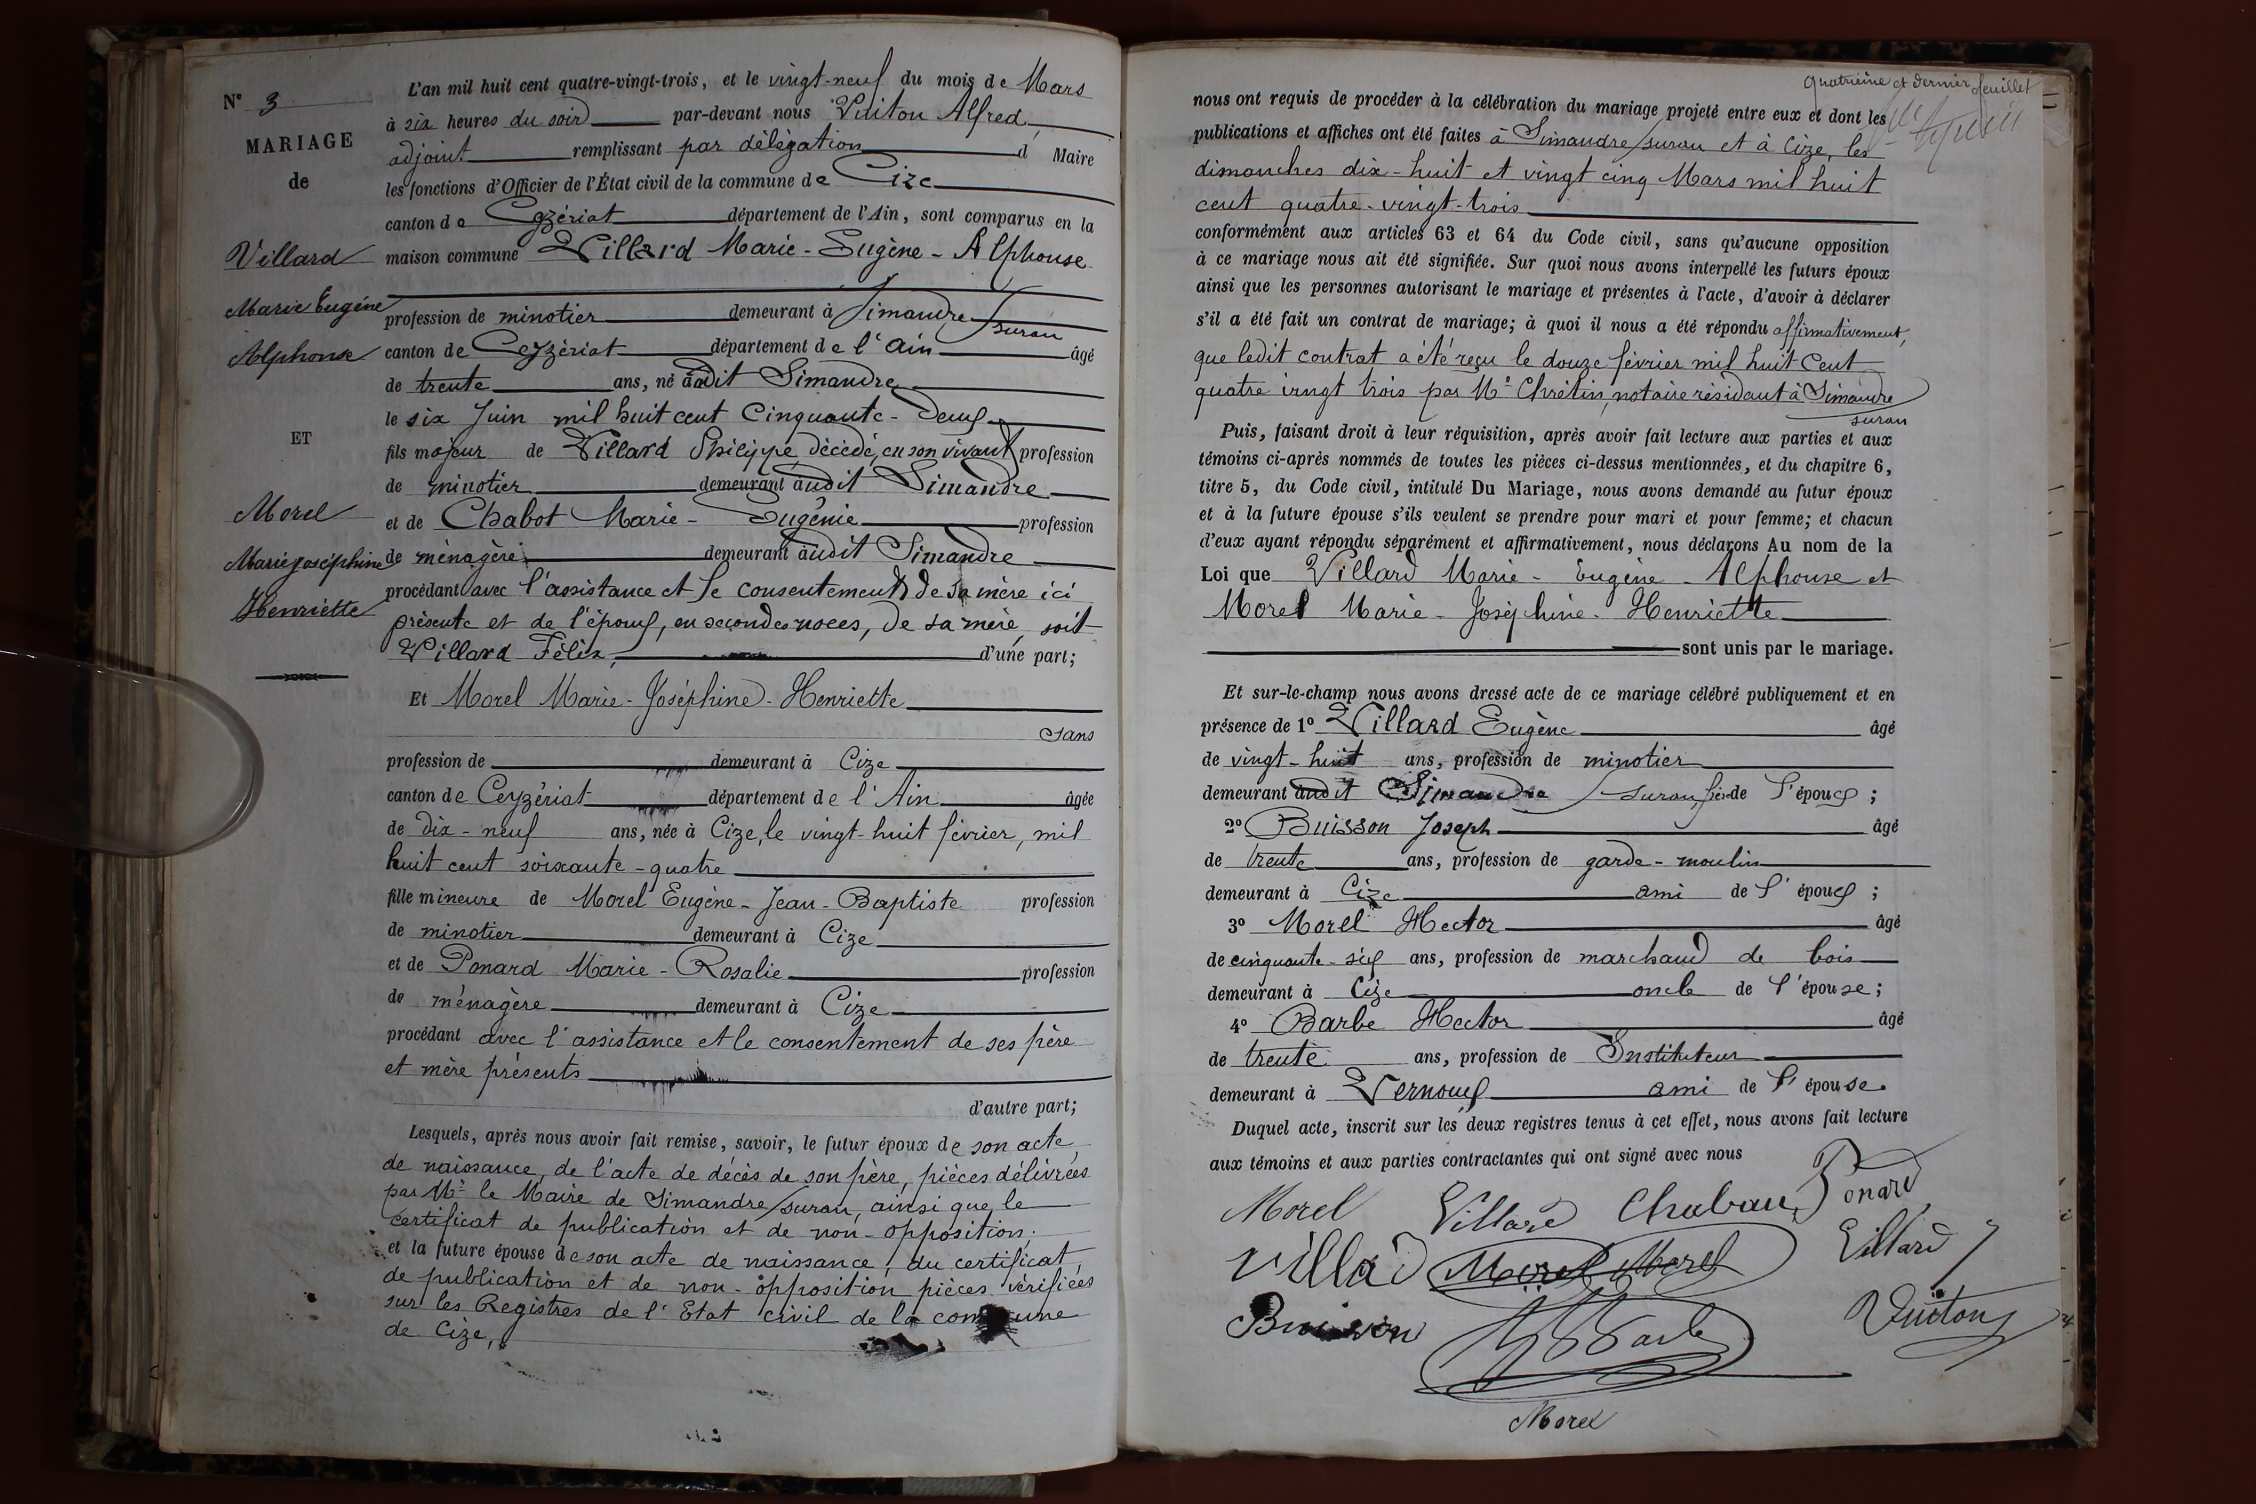 N° 3
MARIAGE
de
Villard
Marie Eugène
Alphonse
ET
Morel
Marie Joséphine
Henriette
L'an mil huit cent quatre-vingt-trois, et le vingt-neuf du mois de Mars
à six heures du soir par-devant nous Vuiton Alfred,
adjoint remplissant par délégation d Maire
les fonctions d'Officier de l'État civil de la commune de Cize
canton de Ceyzériat département de l'Ain, sont comparus en la
maison commune Villard Marie-Eugène-Alphonse
profession de minotier demeurant à Simandre/suran
canton de Ceyzériat département de l'ain âgé
de trente ans, né audit Simandre
le six Juin mil huit cent Cinquante-deux
fils majeur de Villard Philippe, décédé, en son vivant profession
de minotier demeurant audit Simandre
et de Chabot Marie-Eugénie profession
de ménagère demeurant audit Simandre
procédant avec l'assistance et le consentement de sa mère ici
présente et de l'époux, en secondes noces, de sa mère, soit
Villard Félix, d'une part;
Et Morel Marie-Joséphine-Henriette
sans
profession de demeurant à Cize
canton de Ceyzériat département de l'Ain âgée
de dix-neuf ans, née à Cize, le vingt-huit février, mil
huit cent soixante-quatre
fille mineure de Morel Eugène-Jean-Baptiste profession
de minotier demeurant à Cize
et de Ponard Marie-Rosalie profession
de ménagère demeurant à Cize
procédant avec l'assistance et le consentement de ses père
et mère présents
d'autre part;
Lesquels, après nous avoir fait remise, savoir, le futur époux de son acte
de naissance, de l'acte de décès de son père, pièces délivrées
par Mr le Maire de Simandre/suran, ainsi que le
certificat de publication et de non-opposition;
et la future épouse de son acte de naissance, du certificat
de publication et de non-opposition pièces vérifiées
sur les Registres de l'Etat civil de la commune
de Cize,
quatrième et dernier feuillet
nous ont requis de procéder à la célébration du mariage projeté entre eux et dont les
publications et affiches ont été faites à Simandre/suran et à Cize, les
dimanches dix-huit et vingt cinq Mars mil huit
cent quatre-vingt-trois
conformément aux articles 63 et 64 du Code civil, sans qu'aucune opposition
à ce mariage nous ait été signifiée. Sur quoi nous avons interpellé les futurs époux
ainsi que les personnes autorisant le mariage et présentes à l'acte, d'avoir à déclarer
s'il a été fait un contrat de mariage; à quoi il nous a été répondu affirmativement,
que ledit contrat a été reçu le douze février mil huit Cent
quatre vingt trois par Me Chrétin, notaire résidant à Simandre
suran
Puis, faisant droit à leur réquisition, après avoir fait lecture aux parties et aux
témoins ci-après nommés de toutes les pièces ci-dessus mentionnées, et du chapitre 6,
titre 5, du Code civil, intitulé Du Mariage, nous avons demandé au futur époux
et à la future épouse s'ils veulent se prendre pour mari et pour femme; et chacun
d'eux ayant répondu séparément et affirmativement, nous déclarons Au nom de la
Loi que Villard Marie-Eugène-Alphonse et
Morel Marie-Joséphine-Henriette
sont unis par le mariage.
Et sur-le-champ nous avons dressé acte de ce mariage célébré publiquement et en
présence de 1° Villard Eugène âgé
de vingt-huit ans, profession de minotier
demeurant audit Simandre/suran frère de l'époux;
2° Buisson Joseph âgé
de trente ans, profession de garde-moulin
demeurant à Cize ami de l'époux;
3° Morel Hector âgé
de cinquante-six ans, profession de marchand de bois
demeurant à Cize oncle de l'épouse;
4° Barbe Hector âgé
de trente ans, profession de Instituteur
demeurant à Vernoux ami de l'épouse.
Duquel acte, inscrit sur les deux registres tenus à cet effet, nous avons fait lecture
aux témoins et aux parties contractantes qui ont signé avec nous
Morel Villard Ponard
Villard Morel Morel Villard
Buisson Barbe Vuiton
Morel